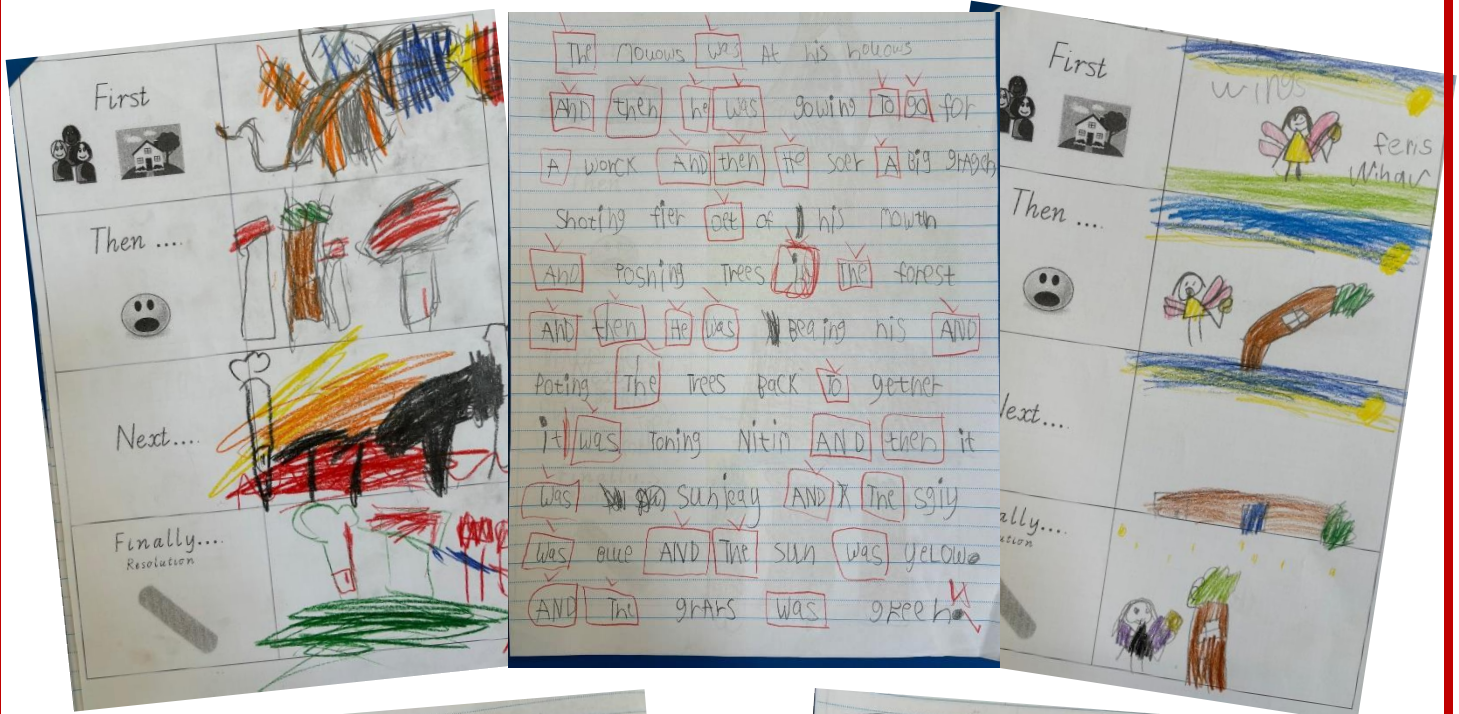 First
Then ....
Next....
Finally....
Resolution
The Mouows was At his houows
And then he was gowing To go for
A worck And then He soer A Big gragen
Shoting fier oet of his mowth
And Poshing Trees in The forest
AND then He was Beging his AND
Poting The Trees BacK To gether
it was Toning Nitim AND then it
was sunleay AND The sgiy
was blue AND The sun was yelow.
AND The grars was green.
First
wings
feris
Wihav
Then ....
Next....